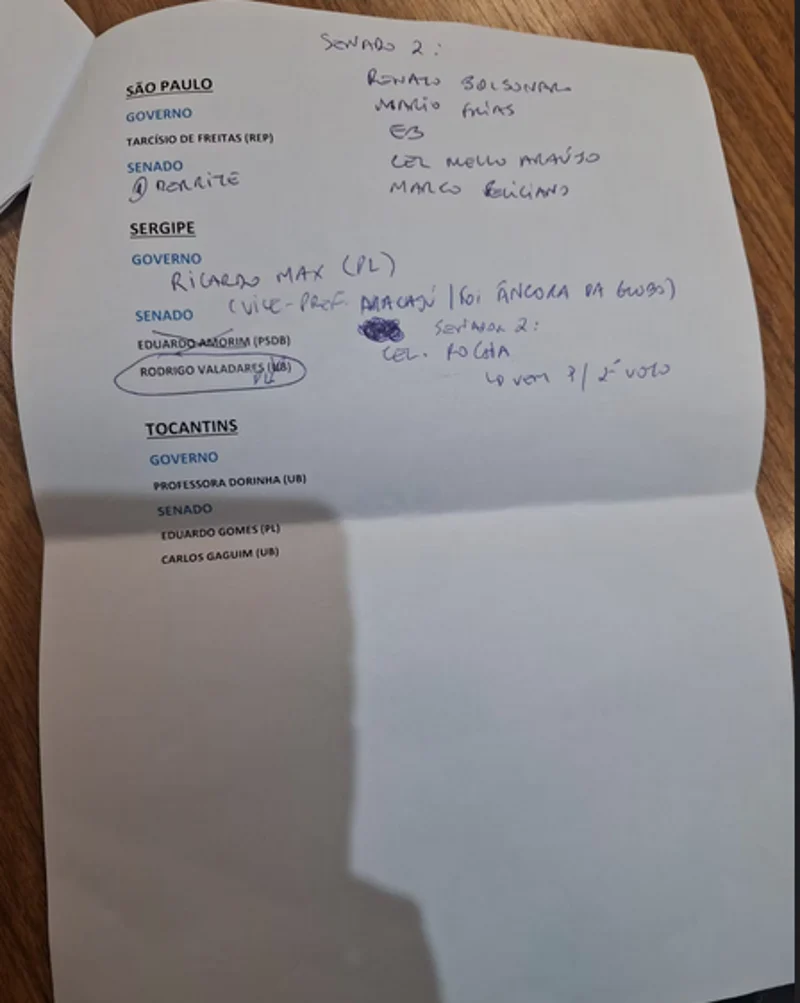 SENADO 2:
SÃO PAULO
RENATO BOLSONARO
GOVERNO
MARIO FRIAS
TARCÍSIO DE FREITAS (REP)
EB
SENADO
CEL MELLO ARAÚJO
① DERRITE
MARCO FELICIANO
SERGIPE
GOVERNO
RICARDO MAX (PL)
(VICE-PREF. ARACAJÚ / FOI ÂNCORA DA GLOBO)
SENADO
SENADOR 2:
EDUARDO AMORIM (PSDB)
CEL. ROCHA
RODRIGO VALADARES (UB)
PL
↳ VEM P/ 2º VOTO
TOCANTINS
GOVERNO
PROFESSORA DORINHA (UB)
SENADO
EDUARDO GOMES (PL)
CARLOS GAGUIM (UB)